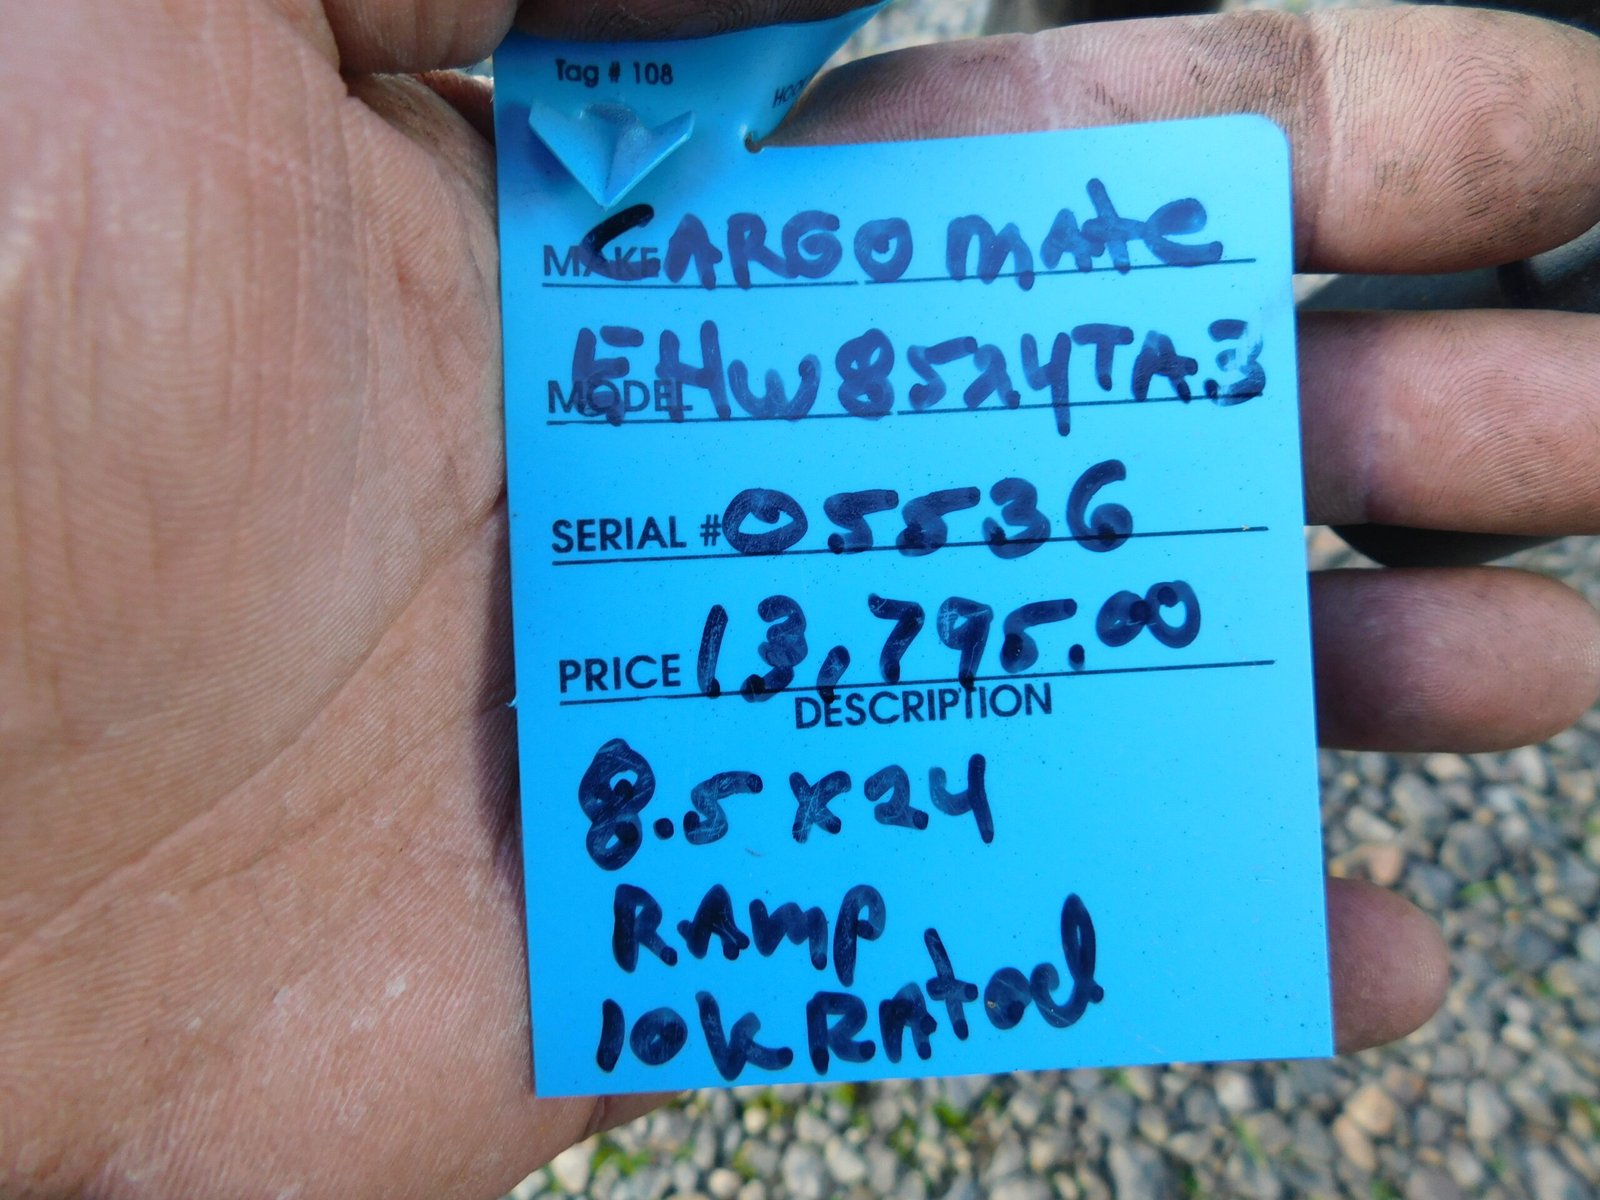 Tag # 108
MAKE CARGO MATE
MODEL EHW8524TA3
SERIAL # 05536
PRICE 13,795.00
DESCRIPTION
8.5 x 24
RAMP
10K RAted